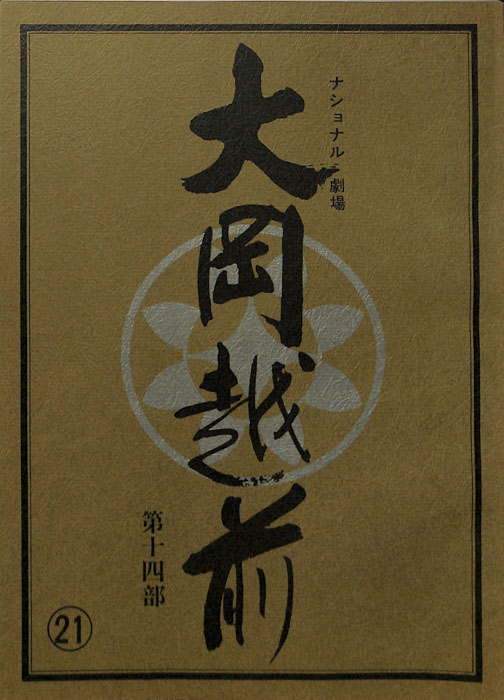 ナショナル劇場
大岡越前
第十四部
21